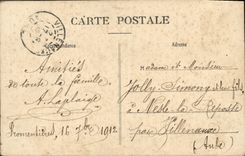 CARTE POSTALE
Correspondance
Adresse
Amitiés
de toute la famille
A. Laplaige
Fromentières, 16 7bre 1912
Madame et Monsieur
Jolly Simony
à Nesle la Reposte
par Villenauxe
(Aube)